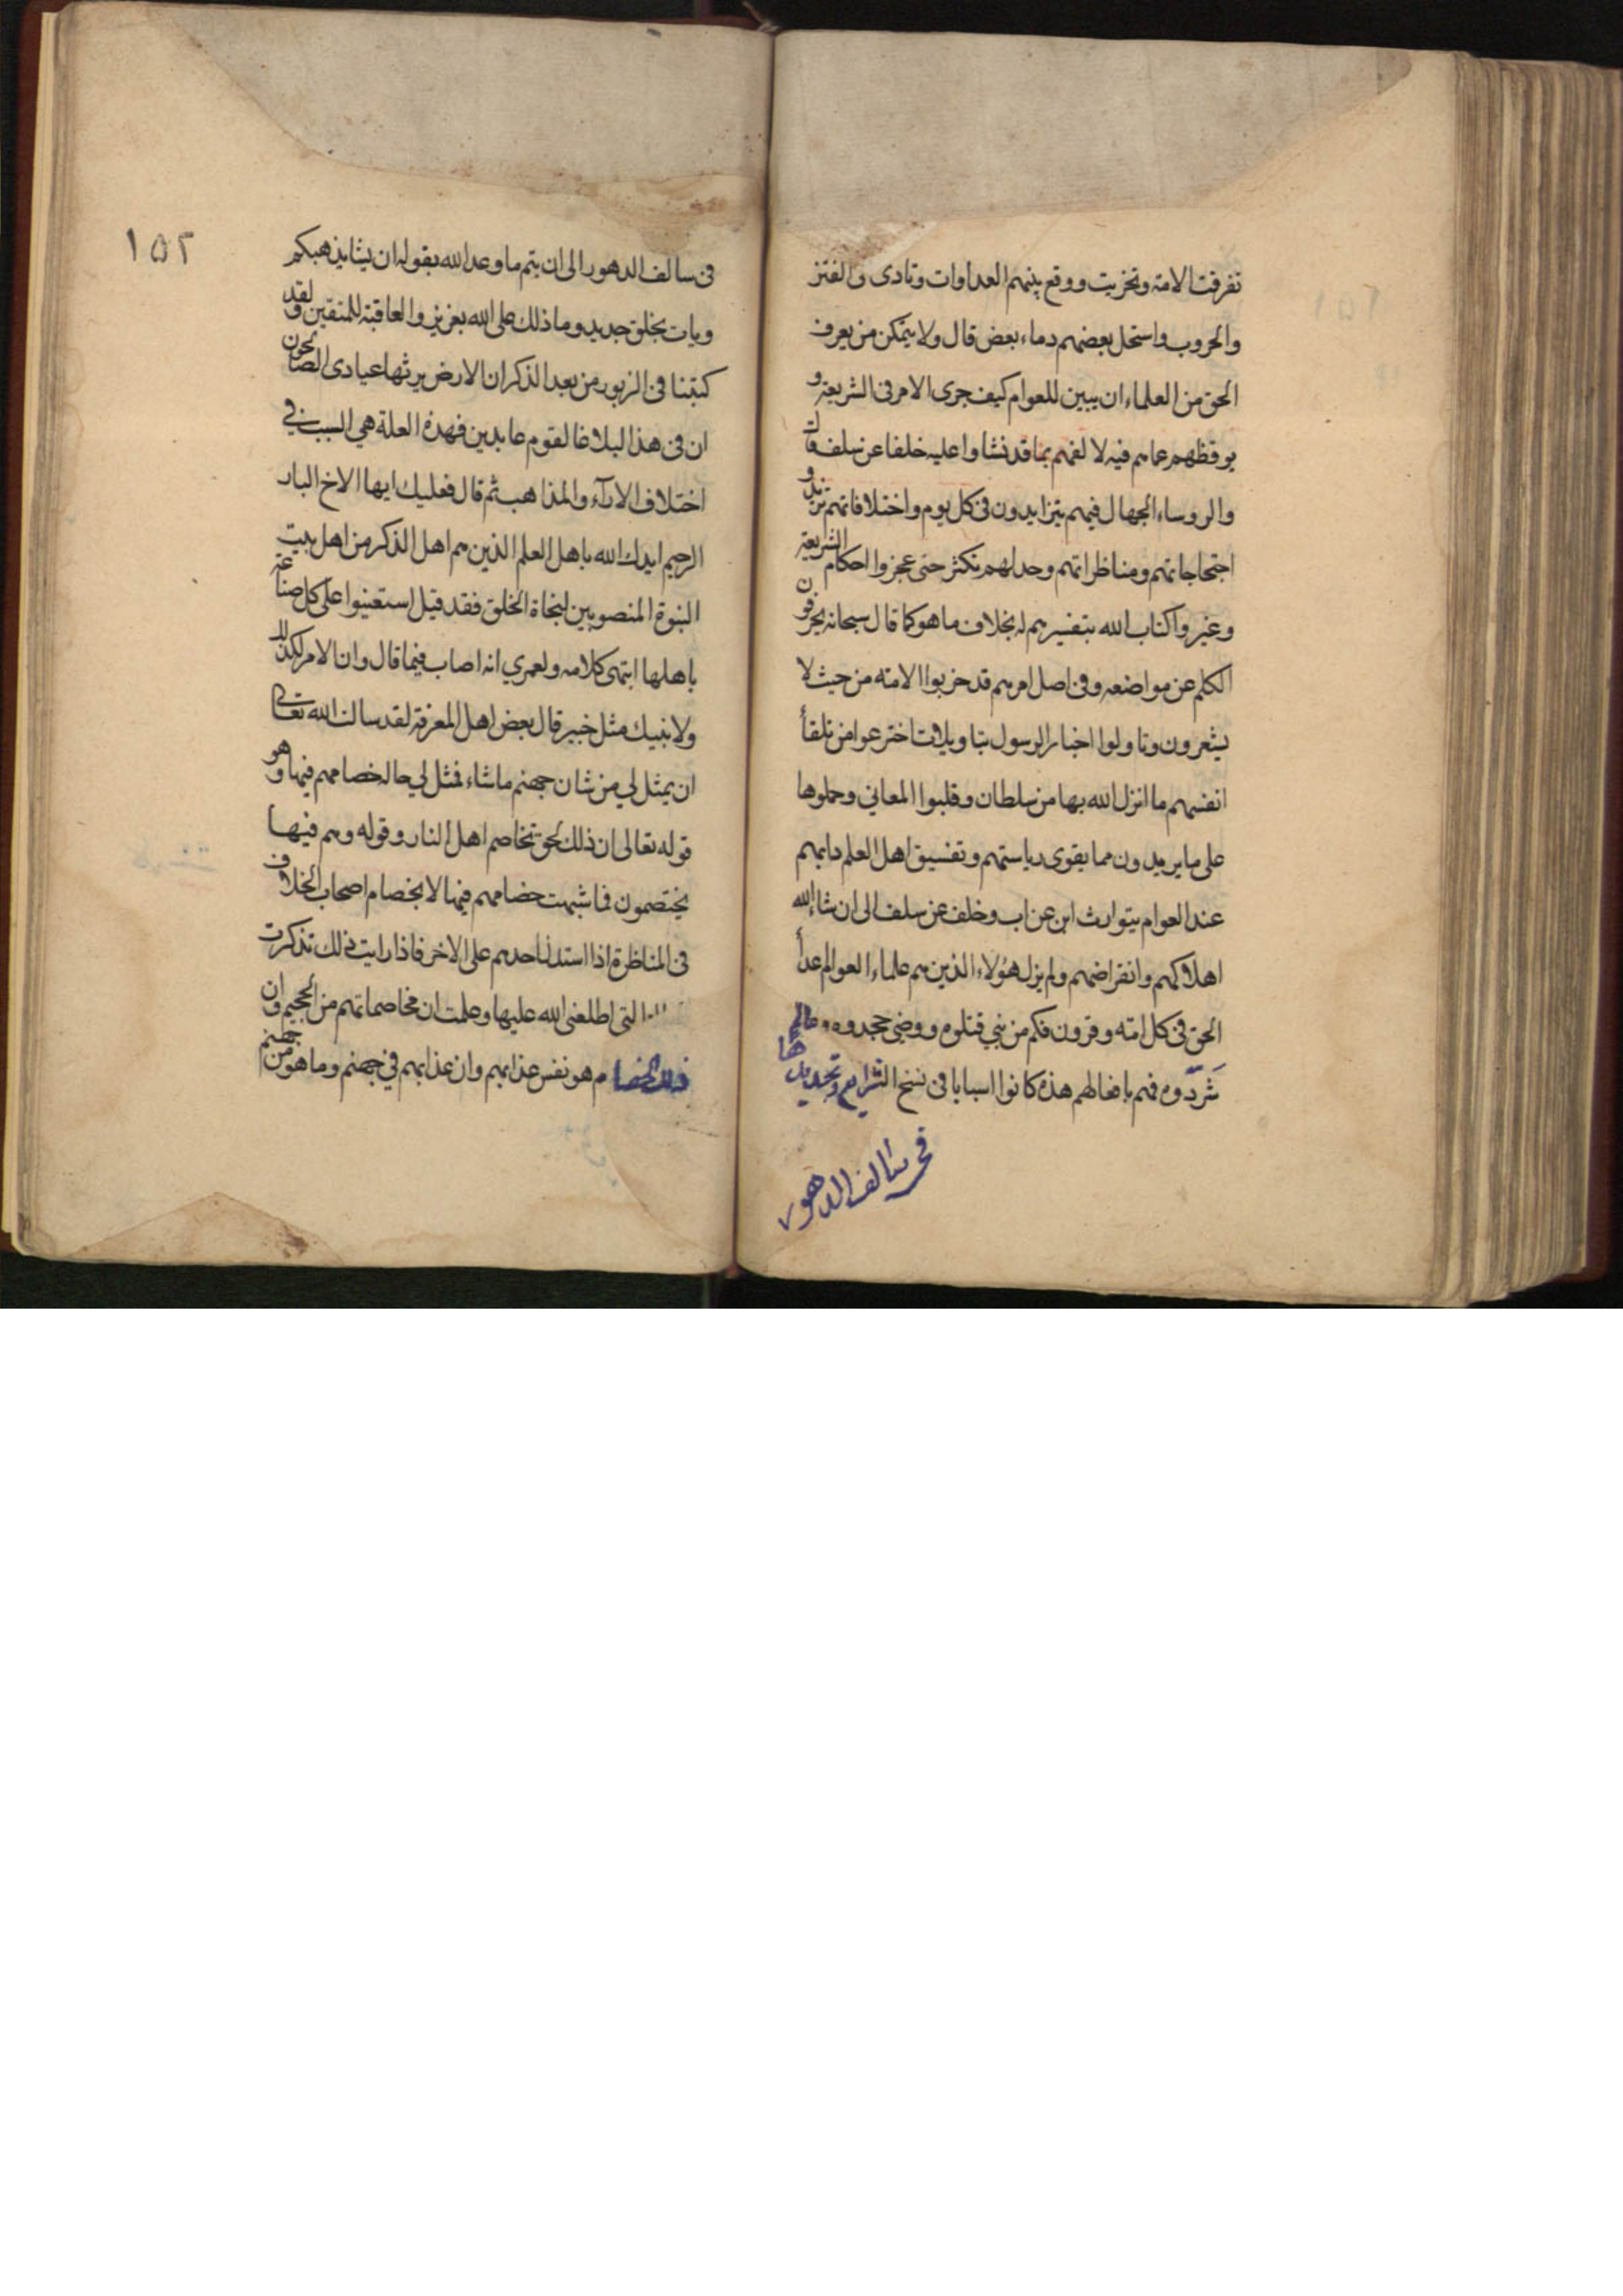 تفرقت الامة وتحزبت ووقع بينهم العداوات وتادى والفتن
والحروب واستحل بعضهم دماء بعض قال ولا يتمكن من يعرف
الحق من العلماء ان يبين للعوام كيف جرى الامر فى الشريعة و
يوقظهم عما هم فيه لالفهم بما قد نشاوا عليه خلفا عن سلف
والروساء الجهال فيهم يتزايدون فى كل يوم واختلافاتهم تزيد و
احتجاجاتهم ومناظراتهم وجدلهم تكثر حتى عجزوا احكام الشريعة
وغيروا كتاب الله بتفسيرهم له بخلاف ما هو كما قال سبحانه يحرفون
الكلم عن مواضعه وفى اصل امرهم قد خربوا الامة من حيث لا
يشعرون وتاولوا اخبار الرسول بتاويلات اخترعوا من تلقأ
انفسهم ما انزل الله بها من سلطان وقلبوا المعاني وحملوها
على ما يريدون مما يقوى رياستهم وتفسيق اهل العلم دابهم
عند العوام يتوارث ابن عن اب وخلف عن سلف الى ان شاء الله
اهلاكهم وانقراضهم ولم يزل هؤلاء الذين هم علماء العوام عدأ
الحق فى كل امة وقرون فكم من نبي قتلوه ووصى جحدوه وعالم
شَردّوه فهم بافعالهم هذه كانوا اسبابا فى نسخ الشرايع وتجديدها
فى سالف الدهور
١٥٢
فى سالف الدهور الى ان يتم ما وعد الله بقوله ان يشا يذهبكم
ويات بخلق جديد وما ذلك على الله بعزيز والعاقبة للمتقين ولقد
كتبنا فى الزبور من بعد الذكر ان الارض يرثها عبادى الصالحون
ان فى هذا البلاغا لقوم عابدين فهذه العلة هي السبب في
اختلاف الارآء والمذاهب ثم قال فعليك ايها الاخ البار
الرحيم ايدك الله باهل العلم الذين هم اهل الذكر من اهل بيت
النبوة المنصوبين لنجاة الخلق فقد قيل استعينوا على كل صناعة
باهلها انتهى كلامه ولعمري انه اصاب فيما قال وان الامر لكذلك
ولا ينبيك مثل خبير قال بعض اهل المعرفة لقد سالت الله تعالى
ان يمثل لي من شان جهنم ما شاء فمثل لي حالة خصامهم فيها وهو
قوله تعالى ان ذلك لحق تخاصم اهل النار وقوله وهم فيها
يختصمون فما شبهت خصامهم فيها الا بخصام اصحاب الخلاف
فى المناظرة اذا استدل احدهم على الاخر فاذا رايت ذلك تذكرت
التى اطلعنى الله عليها وعلمت ان مخاصماتهم من الجحيم وان
ذلك الخصام هو نفس عذابهم وان عذابهم في جهنم وما هو من جهنم